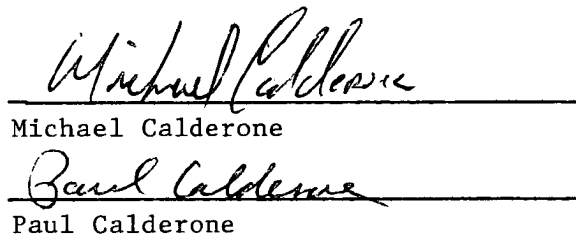 Michael Calderone
Michael Calderone
Paul Calderone
Paul Calderone